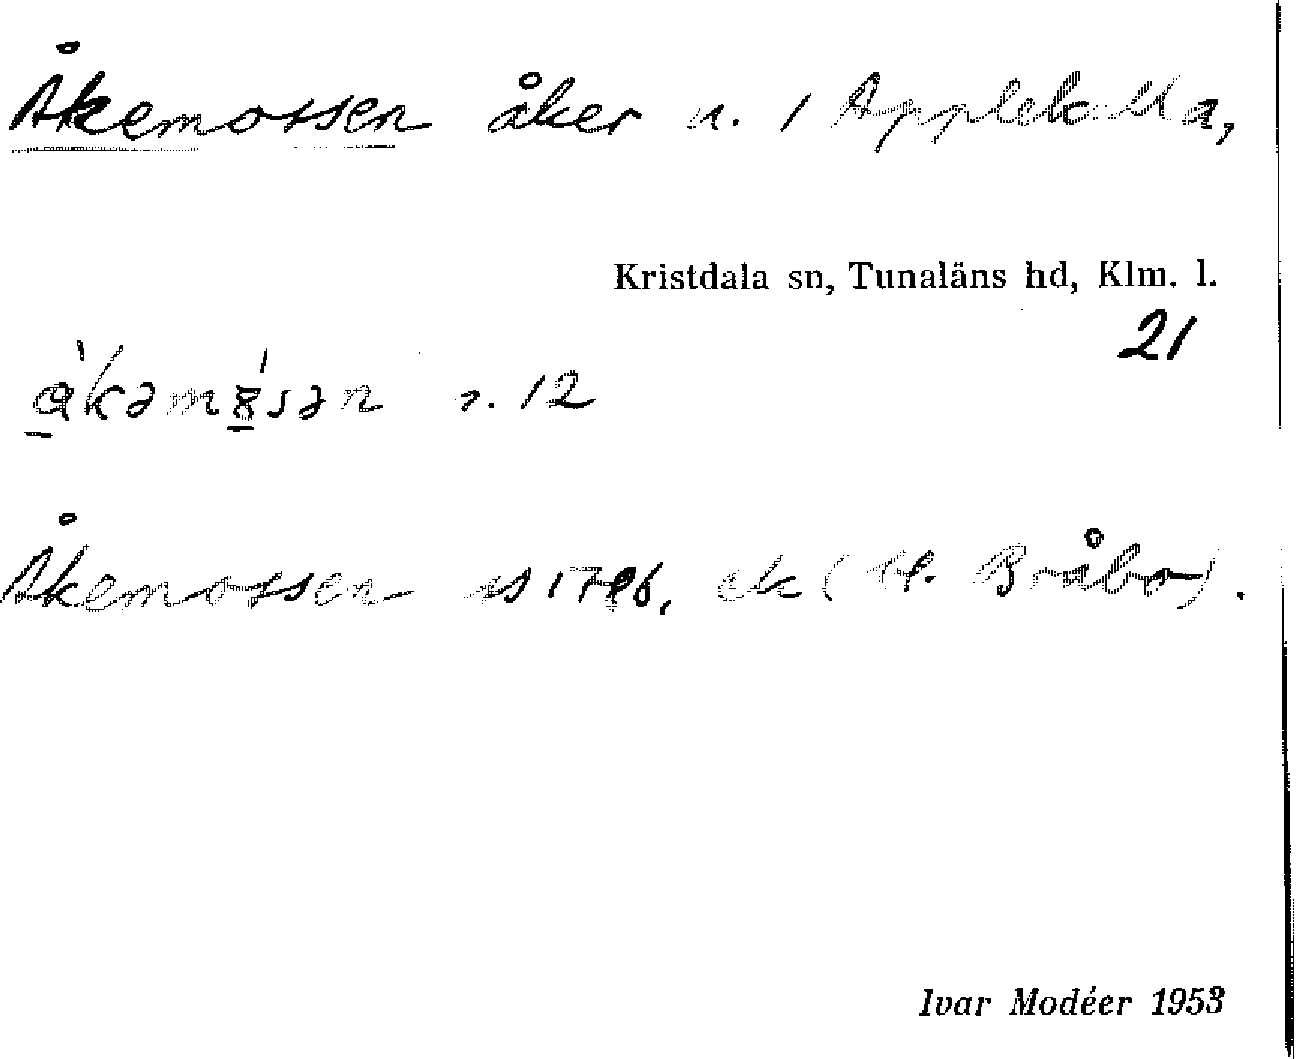 Åkemossen åker n. 1 Applekulla,
Kristdala sn, Tunaläns hd, Klm. l.
21
s. 12
Åkemossen ss 1796, ek (St. Bråbo).
Ivar Modéer 1953